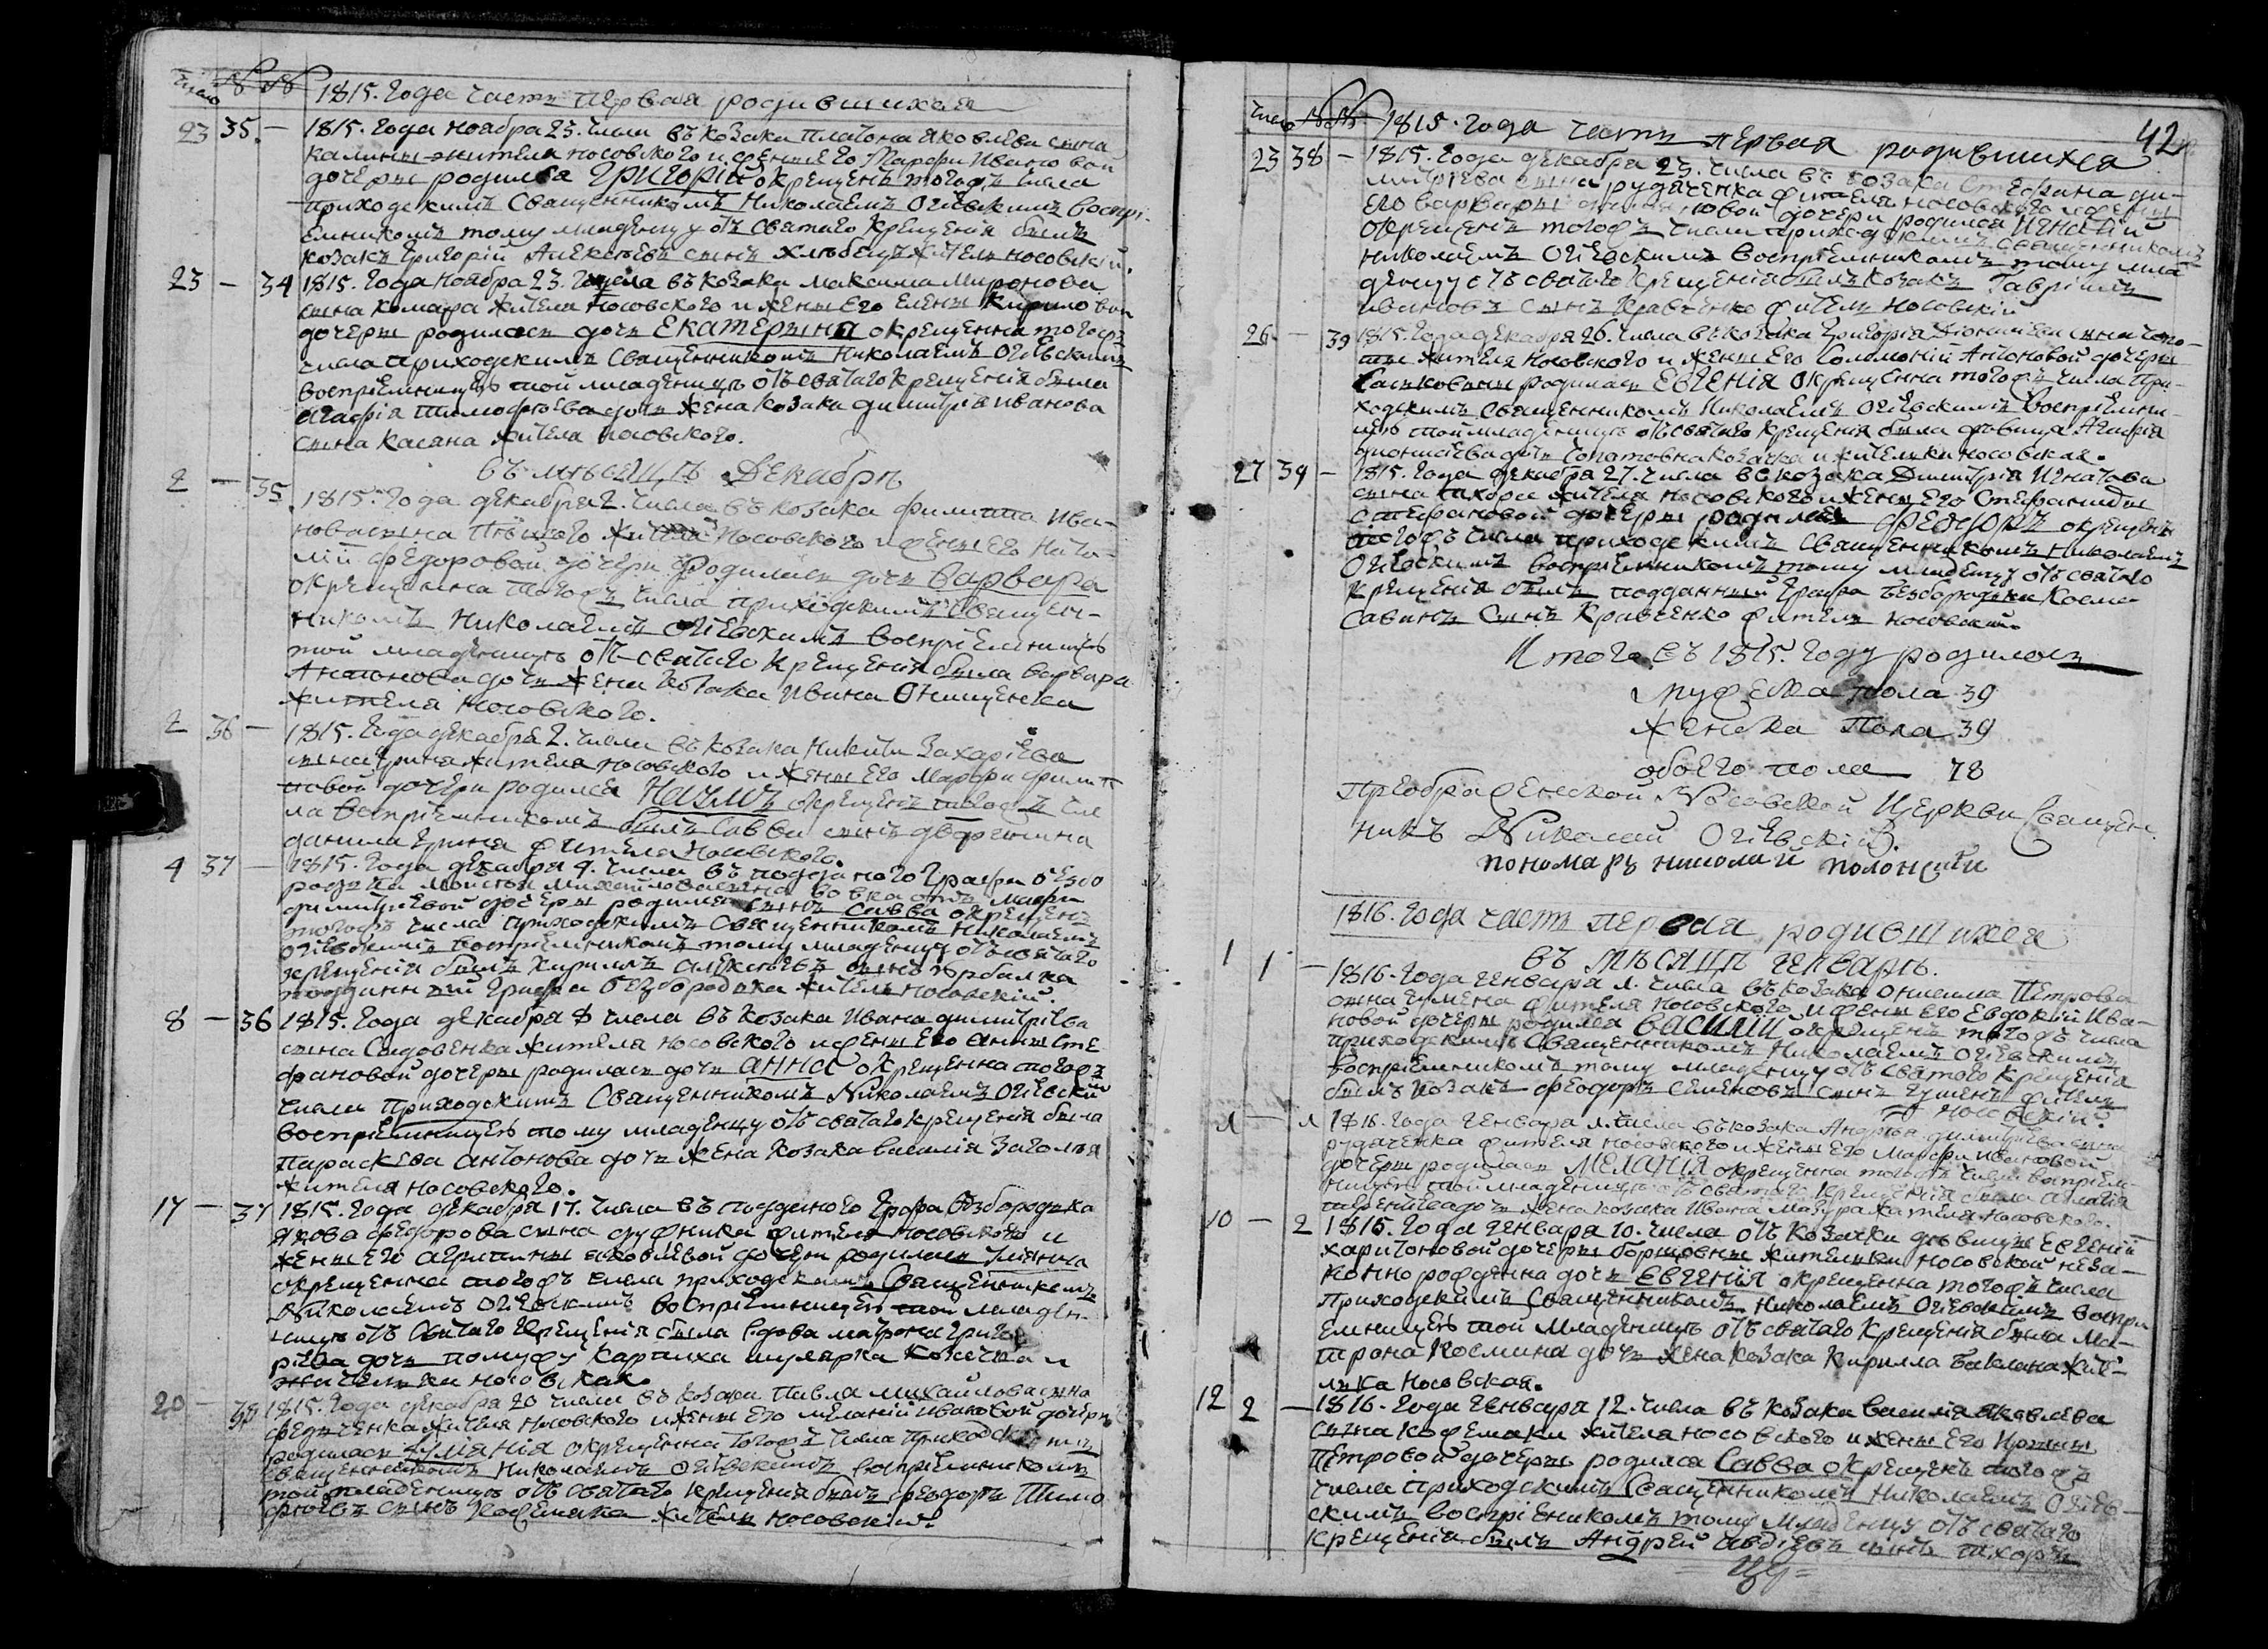 число №№ 1815. Года часть первая родившихся
23 35. — 1815. Года ноября 23. числа въ козака Платона Яковлева сына
Калины жителя носовского и жены его Марфы Ивановой
дочеры родился Григорій окрещенъ тогожъ числа
приходскимъ Священникомъ Николаемъ Огіевскимъ воспрі-
емникомъ тому младенцу отъ святаго крещенія былъ
козакъ Григорій Алексѣевъ сынъ Хлѣбецъ житель носовскій.
23 — 34 1815. Года ноября 23. числа въ козака Максима Миронова
сына Комара жителя носовского и жены его Елены Кириловой
дочеры родилась дочь Екатерына окрещенна тогожъ
числа приходскимъ Священникомъ Николаемъ Огіевскимъ
воспріемницею той младеницѣ отъ святаго крещенія была
Агафія Тимофѣева дочь жена козака Димитрія Иванова
сына Касяна жителя носовского.
въ мѣсяцѣ Декабрѣ
2 — 35 1815. Года декабря 2. числа въ козака Филиппа Ива-
нова сына жителя Носовского и жены его Ната-
лій Федоровой дочери родилась дочь Варвара
окрещенна тогожъ числа приходскимъ Священ-
никомъ Николаемъ Огіевскимъ воспріемницею
той младеницѣ отъ святаго крещенія была Варвара
Антонова дочь жена козака Ивана Онищенка
жителя Носовского.
2 36 — 1815. Года декабря 2. числа въ козака Никиты Захаріева
сына Грина жителя носовского и жены его Марфы Филип
повой дочери родился Наумъ окрещенъ тогожъ чис
ла воспріемникомъ былъ Савва сынъ
данила Грина жителя Носовского.
4 37 — 1815. Года декабря 4. числа въ подданого Графа Безбо
родька Моисея Михайлова сына Марфы
Димитріевой дочеры родился сынъ Савва окрещенъ
тогожъ числа приходскимъ Священникомъ Николаемъ
Огіевскимъ воспріемникомъ тому младенцу отъ святаго
крещенія былъ Кириллъ Алексѣевъ сынъ
подданный Графа Безбородька житель Носовскій.
8 — 36 1815. Года декабря 8 числа въ козака Ивана Димитріева
сына Сидовенка жителя носовского и жены его Анны Сте
фановой дочеры родилась дочь Анна окрещенна тогожъ
числа Приходскимъ Священникомъ Николаемъ Огіевски
воспріемницею тому младенцу отъ святаго крещенія была
Параскева Антонова дочь жена козака Василія
жителя носовского.
17 — 37 1815. Года декабря 17. числа въ подданого Графа Безбородька
Якова Федорова сына жителя носовского и
жены его Агрипины Яковлевой дочери родилась Уліяна
окрещенна тогожъ числа приходскимъ Священникомъ
Николаемъ Огіевскимъ воспріемницею той младен-
ицѣ отъ святаго крещенія была вдова Матрона Григо
ріева дочь помужу Карпиха козачка и
жителька носовская.
20 — 38 1815. Года декабря 20 числа въ козака Павла Михайлова сына
жителя носовского и жены его Меланій Ивановой дочеры
родилась Уліянія окрещенна тогожъ числа Приходскимъ
Священникомъ Николаемъ Огіевскимъ воспріемникомъ
той младеницѣ отъ святаго крещенія былъ Феодоръ Тимо
фѣевъ сынъ Кожемяка житель носовскій.
42
число №№ 1815. Года часть первая родившихся
23 38 — 1815. Года декабря 23. числа въ козака Стефана Ди-
митріева сына Рудченка жителя носовского и жены
его Варвары дочери родился Игнатій
окрещенъ тогожъ числа приходскимъ священникомъ
николаемъ Огіевскимъ воспріемникомъ тому мла
денцу отъ святаго крещенія былъ козакъ Гавріилъ
Ивановъ сынъ Кравченко житель носовскій
26 — 39 1815. Года декабря 26. числа въ козака Григорія сына
жителя носовского и жены его Соломоній Антоновой дочеры
родилась Евгенія окрещенна тогожъ числа При-
ходскимъ священникомъ Николаемъ Огіевскимъ воспріемни-
цею той младеницѣ отъ святаго крещенія была дѣвица Агафія
дочь козачка и жителька носовская.
27 39 — 1815. Года декабря 27. числа въ козака Димитрія Игнатова
сына Тхоря жителя носовского и жены его Стефаниды
Стефановой дочеры родился Феодоръ окрещенъ
тогожъ числа приходскимъ священникомъ Николаемъ
Огіевскимъ воспріемникомъ тому младенцу отъ святаго
крещенія былъ подданный Графа Безбородька Косма
Савинъ Сынъ Кравченко житель носовский.
Итого въ 1815. Году родилось
мужеска пола 39
женска пола 39
обоего пола 78
Преображенской Носовской Церкви Священ-
никъ Николай Огіевскій.
пономарь николай полонскій
1816. Года часть первая родившихся
въ мѣсяцѣ Генварѣ.
1 1 — 1816. Года Генваря 1. числа въ козака Онисима Петрова
сына Гумена жителя носовского и жены его Евдокій Ива-
новой дочеры родился Василій окрещенъ тогожъ числа
приходскимъ Священникомъ Николаемъ Огіевскимъ
воспріемникомъ тому младенцу отъ святого крещенія
былъ козакъ Феодоръ Семеновъ сынъ Гуменъ житель
носовскій.
1 — 1 1816. Года Генваря 1. числа въ козака Андрея Димитріева сына
Рудченка жителя носовского и жены его Марфы Ивановой
дочеры родилась Меланія окрещенна тогожъ числа воспріем-
ницею той младеницѣ отъ святаго крещенія была
дочь жена козака Ивана жителя носовского.
10 — 2 1816. Года Генваря 10. числа отъ козачки дѣвицы Евгеній
Харитоновой дочеры жительки носовской неза-
конно рожденна дочь Евгенія окрещенна тогожъ числа
Приходскимъ Священникомъ Николаемъ Огіевскимъ воспрі
емницею той младеницѣ отъ святаго крещенія была Ма-
трона Космина дочь жена козака Кирилла Баклана жите-
лька носовская.
12 2 — 1816. Года Генваря 12. числа въ козака Василія Яковлева
сына Кожемяки жителя носовского и жены его Ирины
Петровой дочеры родился Савва окрещенъ тогожъ
числа приходскимъ Священникомъ Николаемъ Огіев-
скимъ воспріемникомъ тому младенцу отъ святаго
крещенія былъ Андрей Авдіевъ сынъ Тхоръ